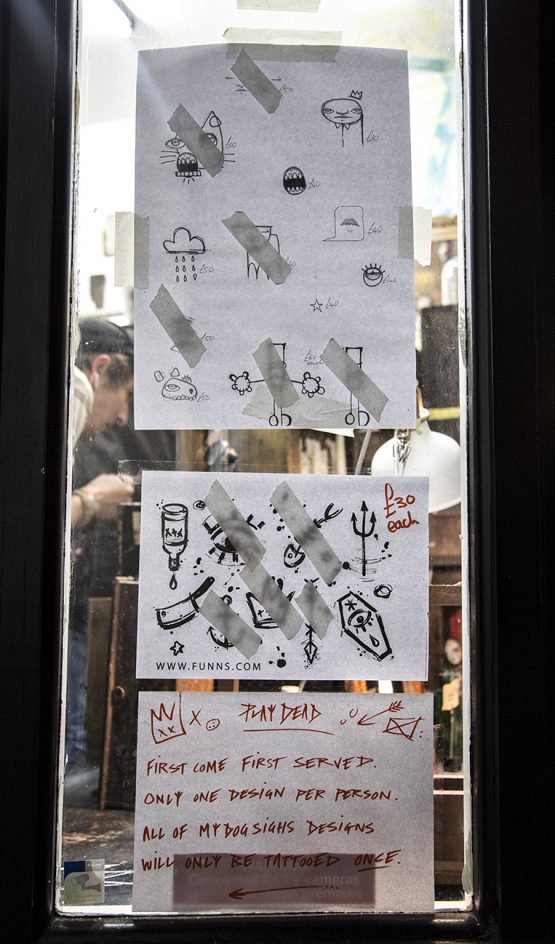 £50
£60
£80
£40
£40
£50
£40
£40
£50
£50
£60
each
£30
each
XXX
WWW.FUNNS.COM
XX X PLAY DEAD
FIRST COME FIRST SERVED.
ONLY ONE DESIGN PER PERSON.
ALL OF MYDOGSIGHS DESIGNS
WILL ONLY BE TATTOOED ONCE.
cameras
premises